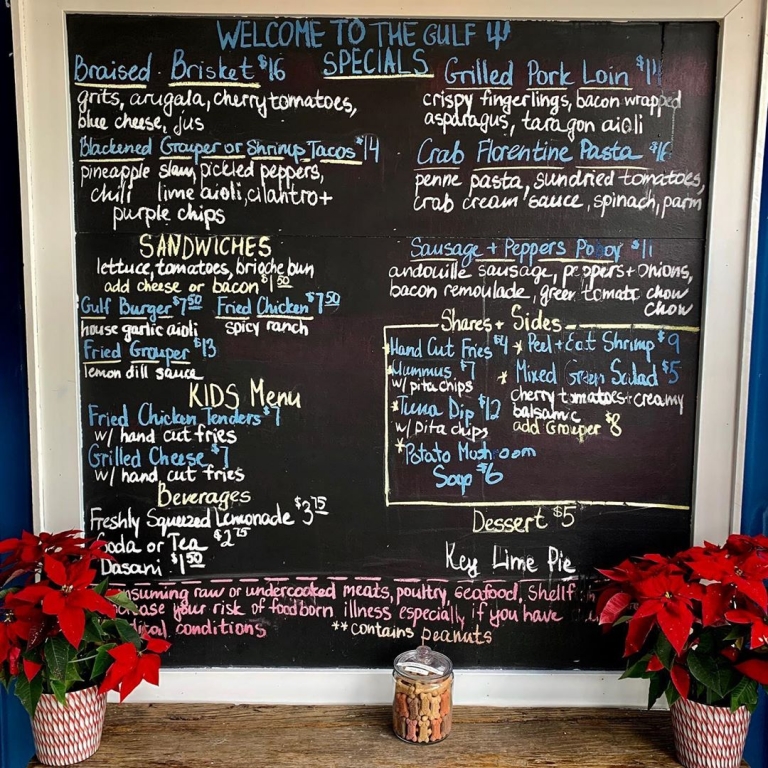 WELCOME TO THE GULF
SPECIALS
Braised Brisket $16
grits, arugala, cherry tomatoes,
blue cheese, jus
Blackened Grouper or Shrimp Tacos $14
pineapple slaw, pickled peppers,
chili lime aioli, cilantro +
purple chips
Grilled Pork Loin
crispy fingerlings, bacon wrapped
asparagus, taragon aioli
Crab Florentine Pasta $16
penne pasta, sundried tomatoes,
crab cream sauce, spinach, parm
SANDWICHES
lettuce, tomatoes, brioche bun
add cheese or bacon $1.50
Gulf Burger $7.50 Fried Chicken $7.50
house garlic aioli spicy ranch
Fried Grouper $13
lemon dill sauce
KIDS Menu
Fried Chicken Tenders $7
w/ hand cut fries
Grilled Cheese $7
w/ hand cut fries
Beverages
Freshly Squeezed Lemonade $3.75
Soda or Tea $2.75
Dasani $1.50
Sausage + Peppers Po Boy $11
andouille sausage, peppers + onions,
bacon remoulade, green tomato chow
chow
Shares + Sides
*Hand Cut Fries $4
*Hummus $7
w/ pita chips
*Tuna Dip $12
w/ pita chips
*Potato Mushroom
Soup $6
*Peel + Eat Shrimp $9
*Mixed Green Salad $5
cherry tomatoes + creamy
balsamic
add Grouper $8
Dessert $5
Key Lime Pie
nsuming raw or undercooked meats, poultry, seafood, shellf
ease your risk of foodborn illness especially if you have
ical conditions
**contains peanuts